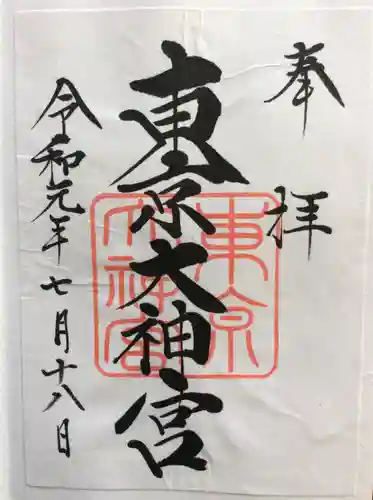 奉拝
東京大神宮
東京大神宮
令和元年七月十八日